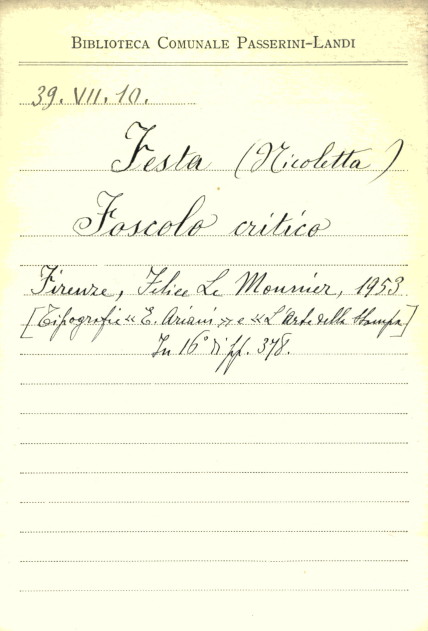 BIBLIOTECA COMUNALE PASSERINI-LANDI
39. VII. 10.
Festa (Nicoletta)
Foscolo critico
Firenze, Felice Le Monnier, 1953.
[Tipografie «E. Ariani» e «L'Arte della Stampa]
In 16° di pp. 378.